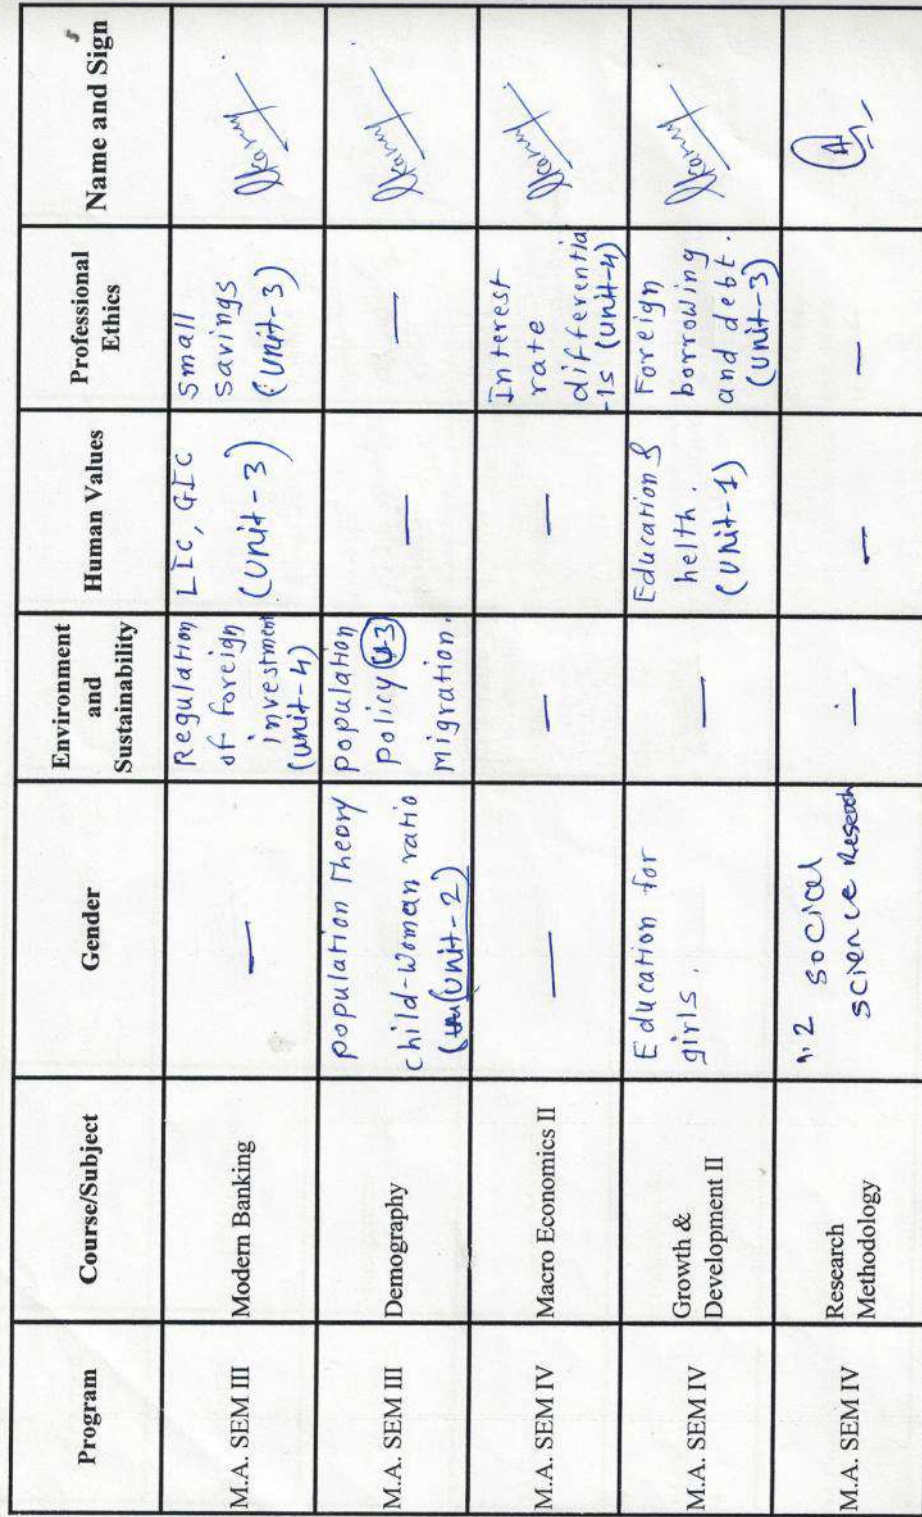 Program
Course/Subject
Gender
Environment
and
Sustainability
Human Values
Professional
Ethics
Name and Sign
M.A. SEM III
Modern Banking
—
Regulation
of foreign
investment
(unit-4)
LIC, GIC
(Unit-3)
Small
savings
(Unit-3)
M.A. SEM III
Demography
population Theory
child-Woman ratio
(Unit-2)
population
policy U-3
migration.
—
—
M.A. SEM IV
Macro Economics II
—
—
—
Interest
rate
differentia
-ls (Unit-4)
M.A. SEM IV
Growth &
Development II
Education for
girls.
—
Education &
helth.
(Unit-1)
Foreign
borrowing
and debt.
(Unit-3)
M.A. SEM IV
Research
Methodology
1.2 social
science Reseach
—
—
—